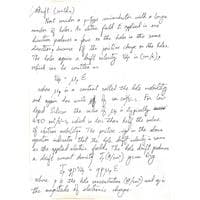 Drift (holes)
Next consider a p-type semiconductor with a large
number of holes. An electric field applied in one
direction produces a force on the holes in the same
direction, because of the positive charge on the holes.
The holes acquire a drift velocity Vdp in (cm/s),
which can be written as
Vdp = μp E
where μp is a constant called the hole mobility
and again has units of cm²/V-s. For
Silicon the value of μp is typically
480 cm²/V-s, which is less than half the value
of electron mobility. The positive sign in the above
equation indicates that the hole drift velocity is in
the applied electric field. The hole drift produces
a drift current density Jp (A/cm²) given by
Jp = qpVdp = qpμp E
where p is the hole concentration (#/cm³) and q is
the magnitude of electronic charge.